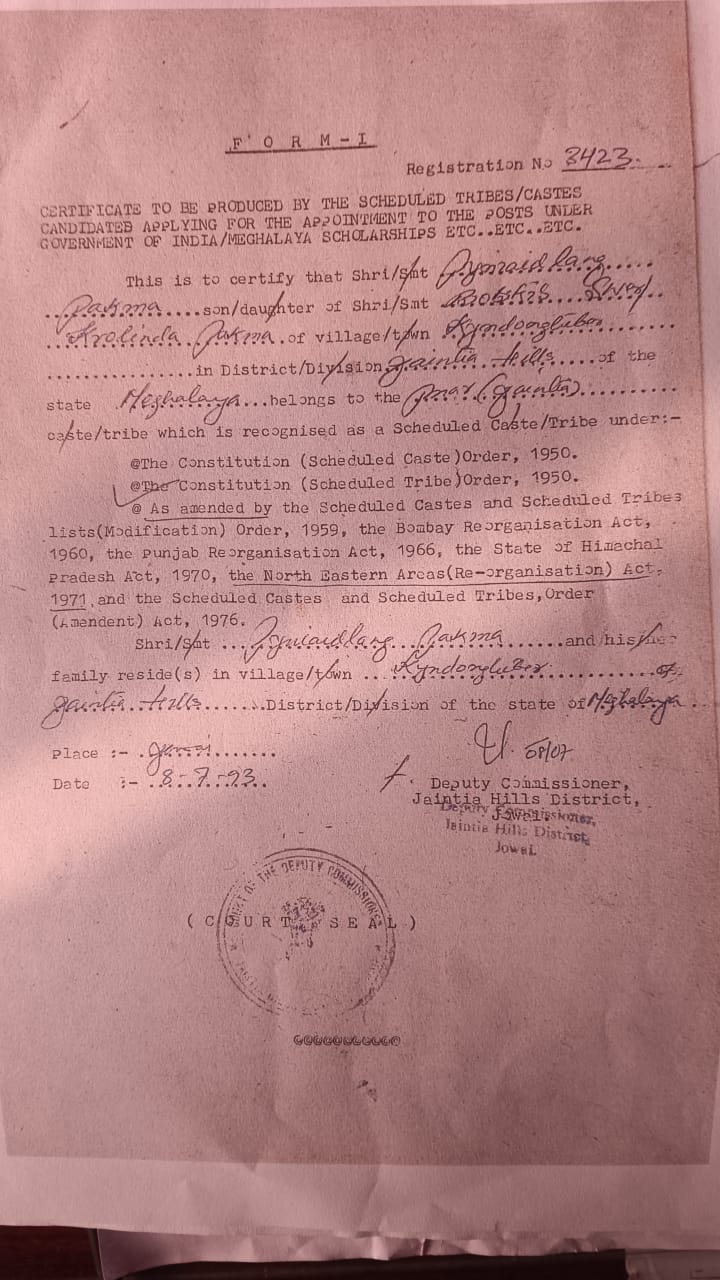 F O R M - I
Registration No 3423.
CERTIFICATE TO BE PRODUCED BY THE SCHEDULED TRIBES/CASTES
CANDIDATED APPLYING FOR THE APPOINTMENT TO THE POSTS UNDER
GOVERNMENT OF INDIA/MEGHALAYA SCHOLARSHIPS ETC..ETC..ETC.
This is to certify that Shri/Smt
Pakma.....son/daughter of Shri/Smt
Krolinda Pakma.of village/town
in District/Division Jaintia Hills.....of the
state Meghalaya...belongs to the Pnar (Jaintia)
caste/tribe which is recognised as a Scheduled Caste/Tribe under:-
@The Constitution (Scheduled Caste)Order, 1950.
@The Constitution (Scheduled Tribe)Order, 1950.
@ As amended by the Scheduled Castes and Scheduled Tribes
lists(Modification) Order, 1959, the Bombay Reorganisation Act,
1960, the Punjab Reorganisation Act, 1966, the State of Himachal
Pradesh Act, 1970, the North Eastern Areas(Re-organisation) Act,
1971,and the Scheduled Castes and Scheduled Tribes,Order
(Amendent) Act, 1976.
Shri/Smt ... Pakma......and his/her
family reside(s) in village/town ... of
Jaintia Hills.......District/Division of the state of Meghalaya
Place :- .Jowai.......
Date :- .8.-7.-93.
Deputy Commissioner,
Jaintia Hills District,
Jowai.
Deputy Commissioner,
Jaintia Hills District,
Jowai.
OF THE DEPUTY COMMISSIONER
( COURT SEAL )